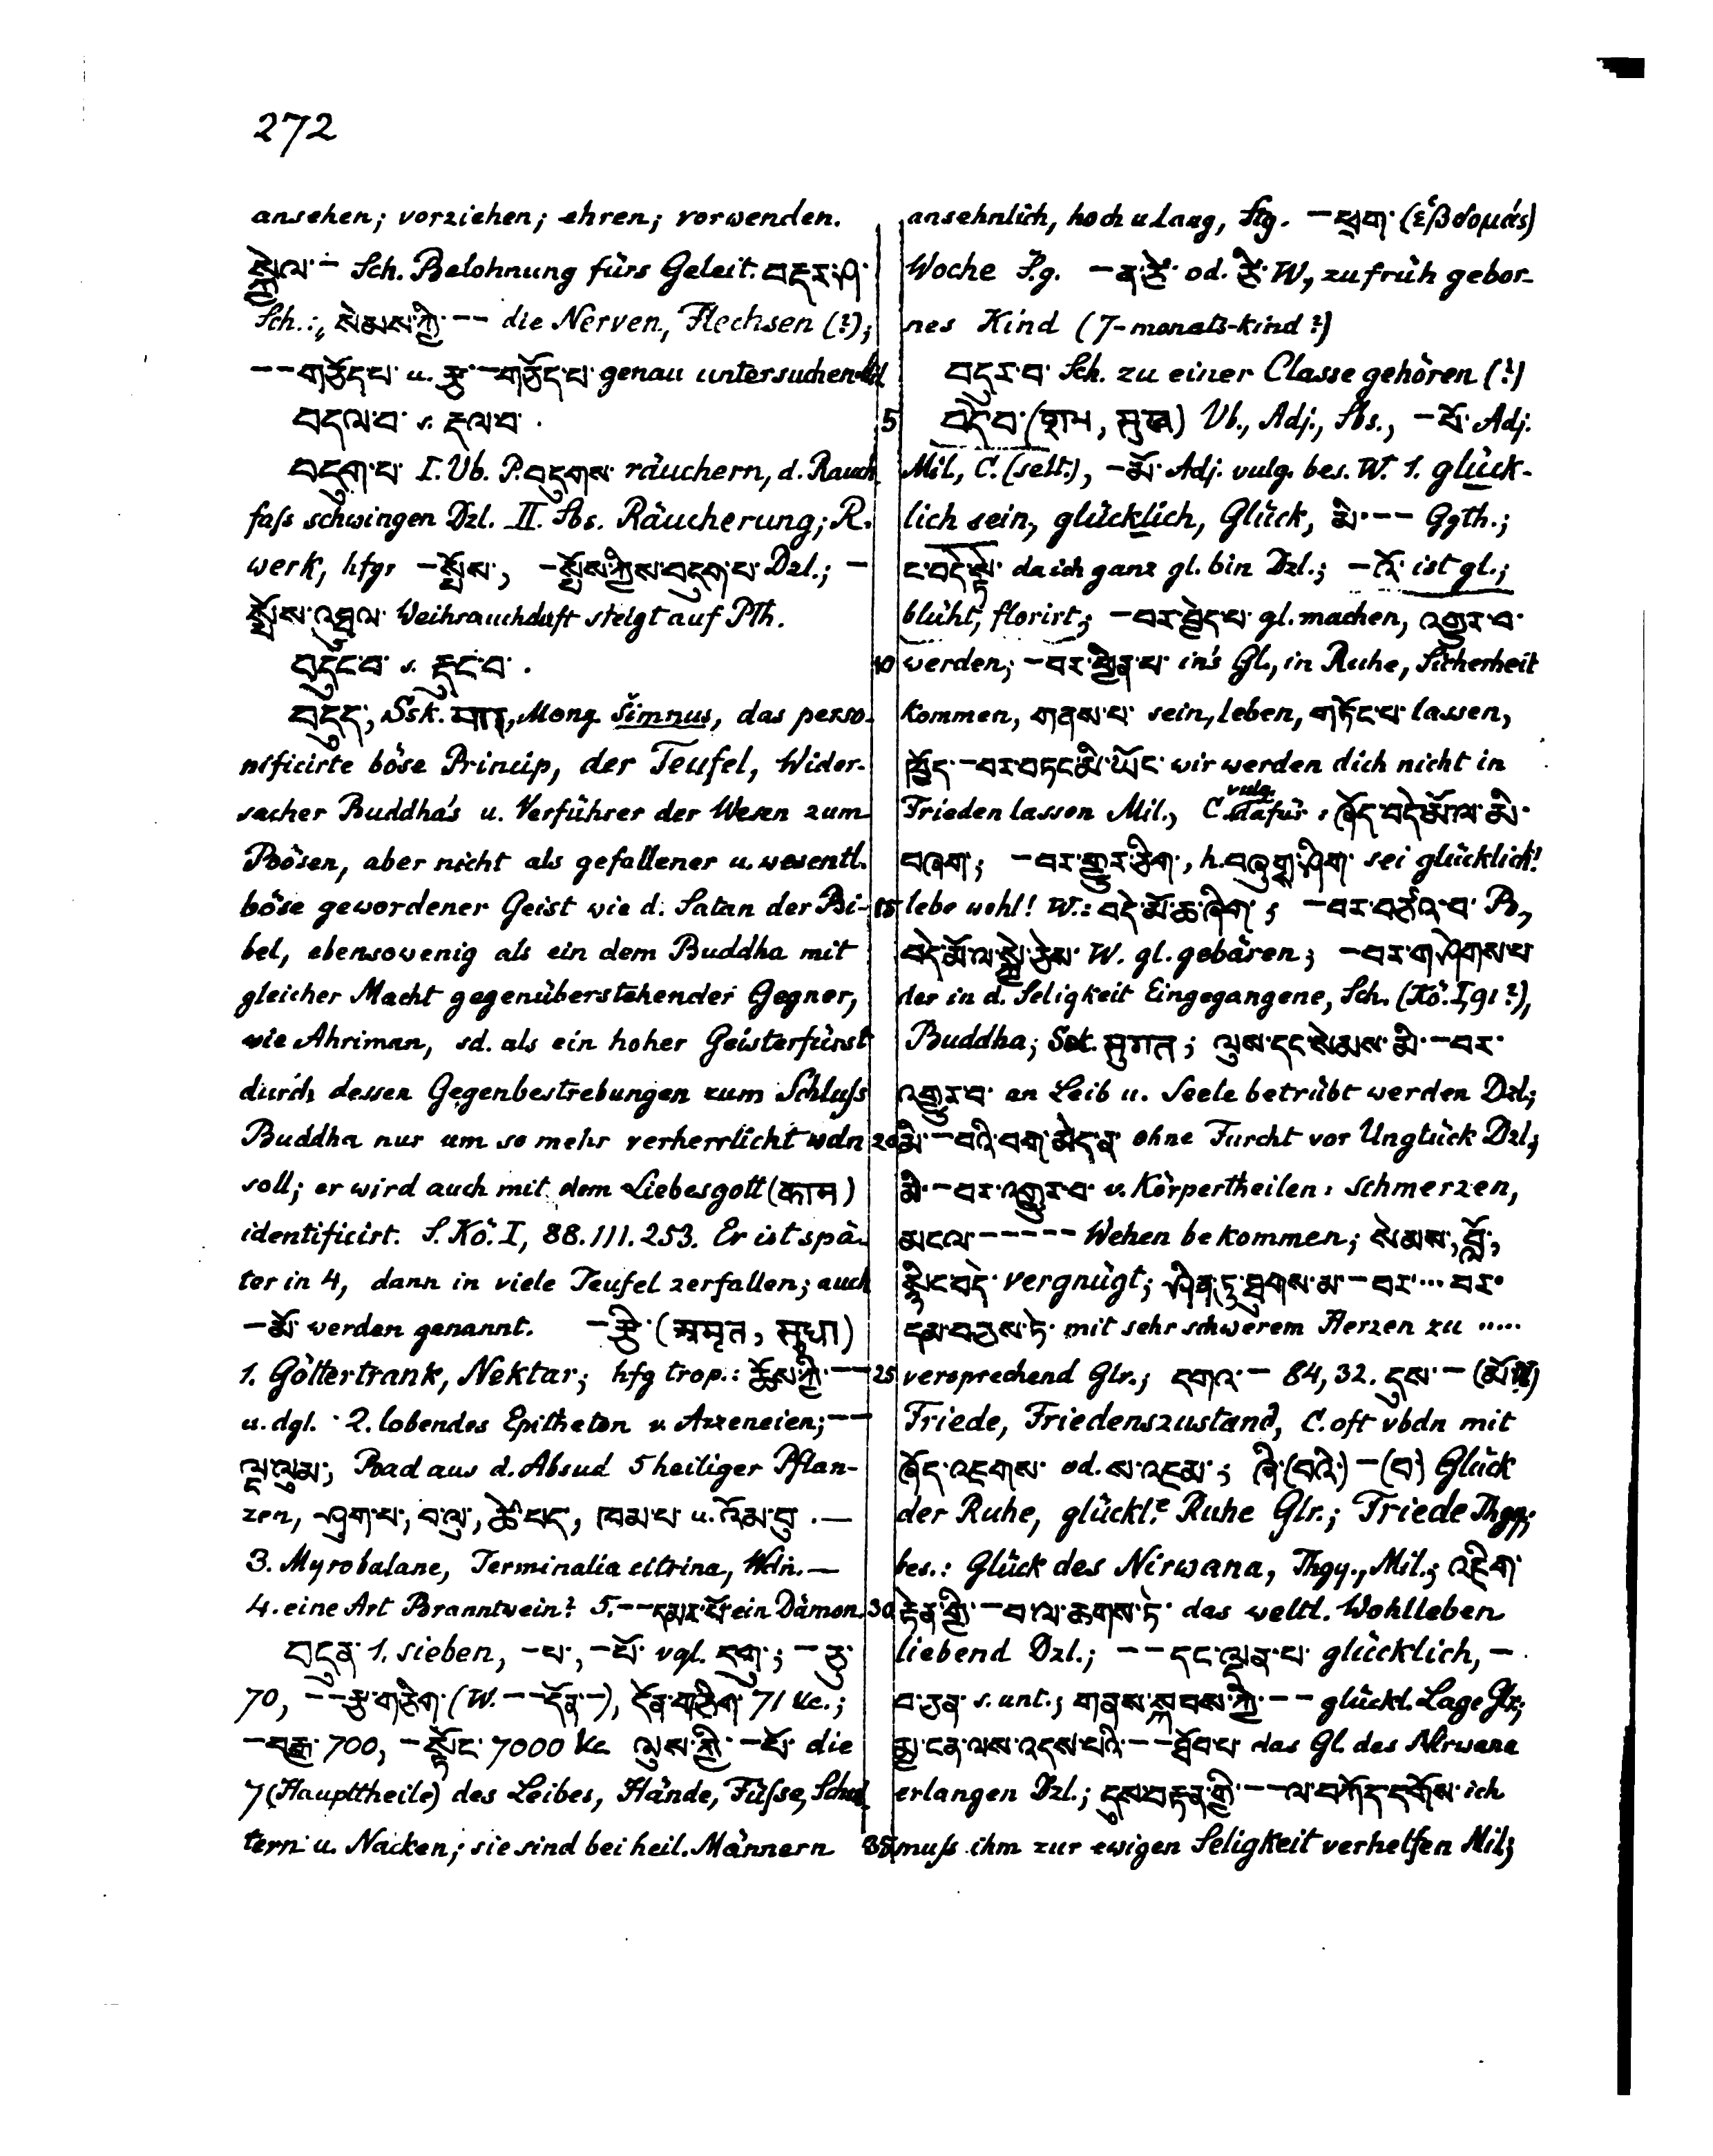 272
ansehen; vorziehen; ehren; vorwenden.
སྐྱེལ་– Sch. Belohnung fürs Geleit. བདར་ཤ་
Sch.:, སེམས་ཀྱི་–– die Nerven, Flechsen (?);
––གཅོད་པ་ u. རྩ་–གཅོད་པ་ genau untersuchen
བདལ་བ་ s. རྡལ་བ་.
བདུག་པ་ I. Vb. P. བདུགས་ räuchern, d. Rauch
faſs schwingen Dzl. II. Sbs. Räucherung; R.
werk, hfgr –སྤོས་, –སྤོས་ཀྱིས་བདུག་པ་ Dzl.; –
སྤོས་འཕྱུལ་ Weihrauchduft steigt auf Pth.
བདུང་བ་ s. རྡུང་བ་.
བདུད་, Ssk. मार, Mong. šimnus, das perso-
nificirte böse Princip, der Teufel, Wider-
sacher Buddha's u. Verführer der Wesen zum
Bösen, aber nicht als gefallener u. wesentl.
böse gewordener Geist wie d. Satan der Bi-
bel, ebensowenig als ein dem Buddha mit
gleicher Macht gegenüberstehender Gegner,
wie Ahriman, sd. als ein hoher Geisterfürst
durch dessen Gegenbestrebungen zum Schluſs
Buddha nur um so mehr verherrlicht wdn
soll; er wird auch mit dem Liebesgott (काम)
identificirt. S. Kö. I, 88. 111. 253. Er ist spä-
ter in 4, dann in viele Teufel zerfallen; auch
–མོ་ werden genannt. –རྩི་ (अमृत, सुधा)
1. Göttertrank, Nektar; hfg trop.: ཆོས་ཀྱི་––
u. dgl. 2. lobendes Epitheton v. Arzeneien; ––
ལྔ་ལུམ་, Bad aus d. Absud 5 heiliger Pflan-
zen, ཤུག་པ་, བ་ལུ་, ཚེ་པད་, ཁམ་པ་ u. འོམ་བུ་. —
3. Myrobalane, Terminalia citrina, Wdn. —
4. eine Art Branntwein? 5. ––དམར་པོ་ ein Dämon.
བདུན་ 1. sieben, –པ་, –པོ་ vgl. དགུ་; –ཅུ་
70, ––རྩ་གཅིག་ (W. ––དོན་–), དོན་གཅིག་ 71 &c.;
–བརྒྱ་ 700, –སྟོང་ 7000 &c ལུས་ཀྱི་ –པོ་ die
7 (Haupttheile) des Leibes, Hände, Füſse, Schul-
tern u. Nacken; sie sind bei heil. Männern
ansehnlich, hoch u lang, Stg. –ཕྲག་ (ἑβδομάς)
Woche S.g. –ན་སྔ་ od. W, zu früh gebor-
nes Kind (7-monats-kind?)
བདུར་བ་ Sch. zu einer Classe gehören (?)
5 བདེ་བ་ (शम, सुख) Vb., Adj., Sbs., –པོ་ Adj.
Mil, C. (selt.), –མོ་ Adj. vulg. bes. W. 1. glück-
lich sein, glücklich, Glück, མི་–– Ggth.;
ང་བདེ་སྟེ་ da ich ganz gl. bin Dzl.; –འོ་ ist gl.;
blüht, florirt; –བར་བྱེད་པ་ gl. machen, འགྱུར་བ་
10 werden; –བར་ཕྱིན་པ་ in's Gl., in Ruhe, Sicherheit
kommen, གནས་པ་ sein, leben, གཏོང་པ་ lassen,
ཁྱོད་–བར་བཏང་མི་ཡོང་ wir werden dich nicht in
Frieden lassen Mil., C. vulg. dafür: ཁྱོད་བདེ་མོ་ལ་མི་
བཞག་; –བར་གྱུར་ཅིག་, h. བཞུགས་ཤིག་ sei glücklich!
15 lebe wohl! W.: བདེ་མོ་ཆ་ཞིག་; –བར་བཙའ་བ་ B,
བདེ་མོ་ལ་སྐྱེ་ཅེས་ W. gl. gebären; –བར་གཤེགས་པ་
der in d. Seligkeit Eingegangene, Sch. (Kö. I, 91?),
Buddha; Ssk. सुगत; ལུས་དང་སེམས་མི་–བར་
འགྱུར་བ་ an Leib u. Seele betrübt werden Dzl;
20 མི་–བའི་བག་མེད་ན་ ohne Furcht vor Unglück Dzl;
མི་–བར་འགྱུར་བ་ v. Körpertheilen: schmerzen,
མངལ་––––– Wehen bekommen; སེམས་, བློ་,
སྙིང་བདེ་ vergnügt; ཤིན་ཏུ་ཐུགས་མ་–བར་...བར་
དམ་བཅས་ཏེ་ mit sehr schwerem Herzen zu .....
25 versprechend Glr.; དགའ་– 84, 32. དུས་–
Friede, Friedenszustand, C. oft vbdn mit
ཁྲོད་འཇགས་ od. ས་འཇམ་; ཞི་(བའི་)–(བ་) Glück
der Ruhe, glückl.e Ruhe Glr.; Friede Thgy;
bes.: Glück des Nirwana, Thgy., Mil.; འཇིག་
30 རྟེན་གྱི་–བ་ལ་ཆགས་ཏེ་ das weltl. Wohlleben
liebend Dzl.; ––དང་ལྡན་པ་ glücklich, –
བ་ཅན་ s. unt.; གནས་སྐབས་ཀྱི་–– glückl. Lage Glr;
མྱ་ངན་ལས་འདས་པའི་––ཐོབ་པ་ das Gl. des Nirwana
erlangen Dzl.; དུས་བརྟན་གྱི་––ལ་བཀོད་དགོས་ ich
35 muſs ihm zur ewigen Seligkeit verhelfen Mil;